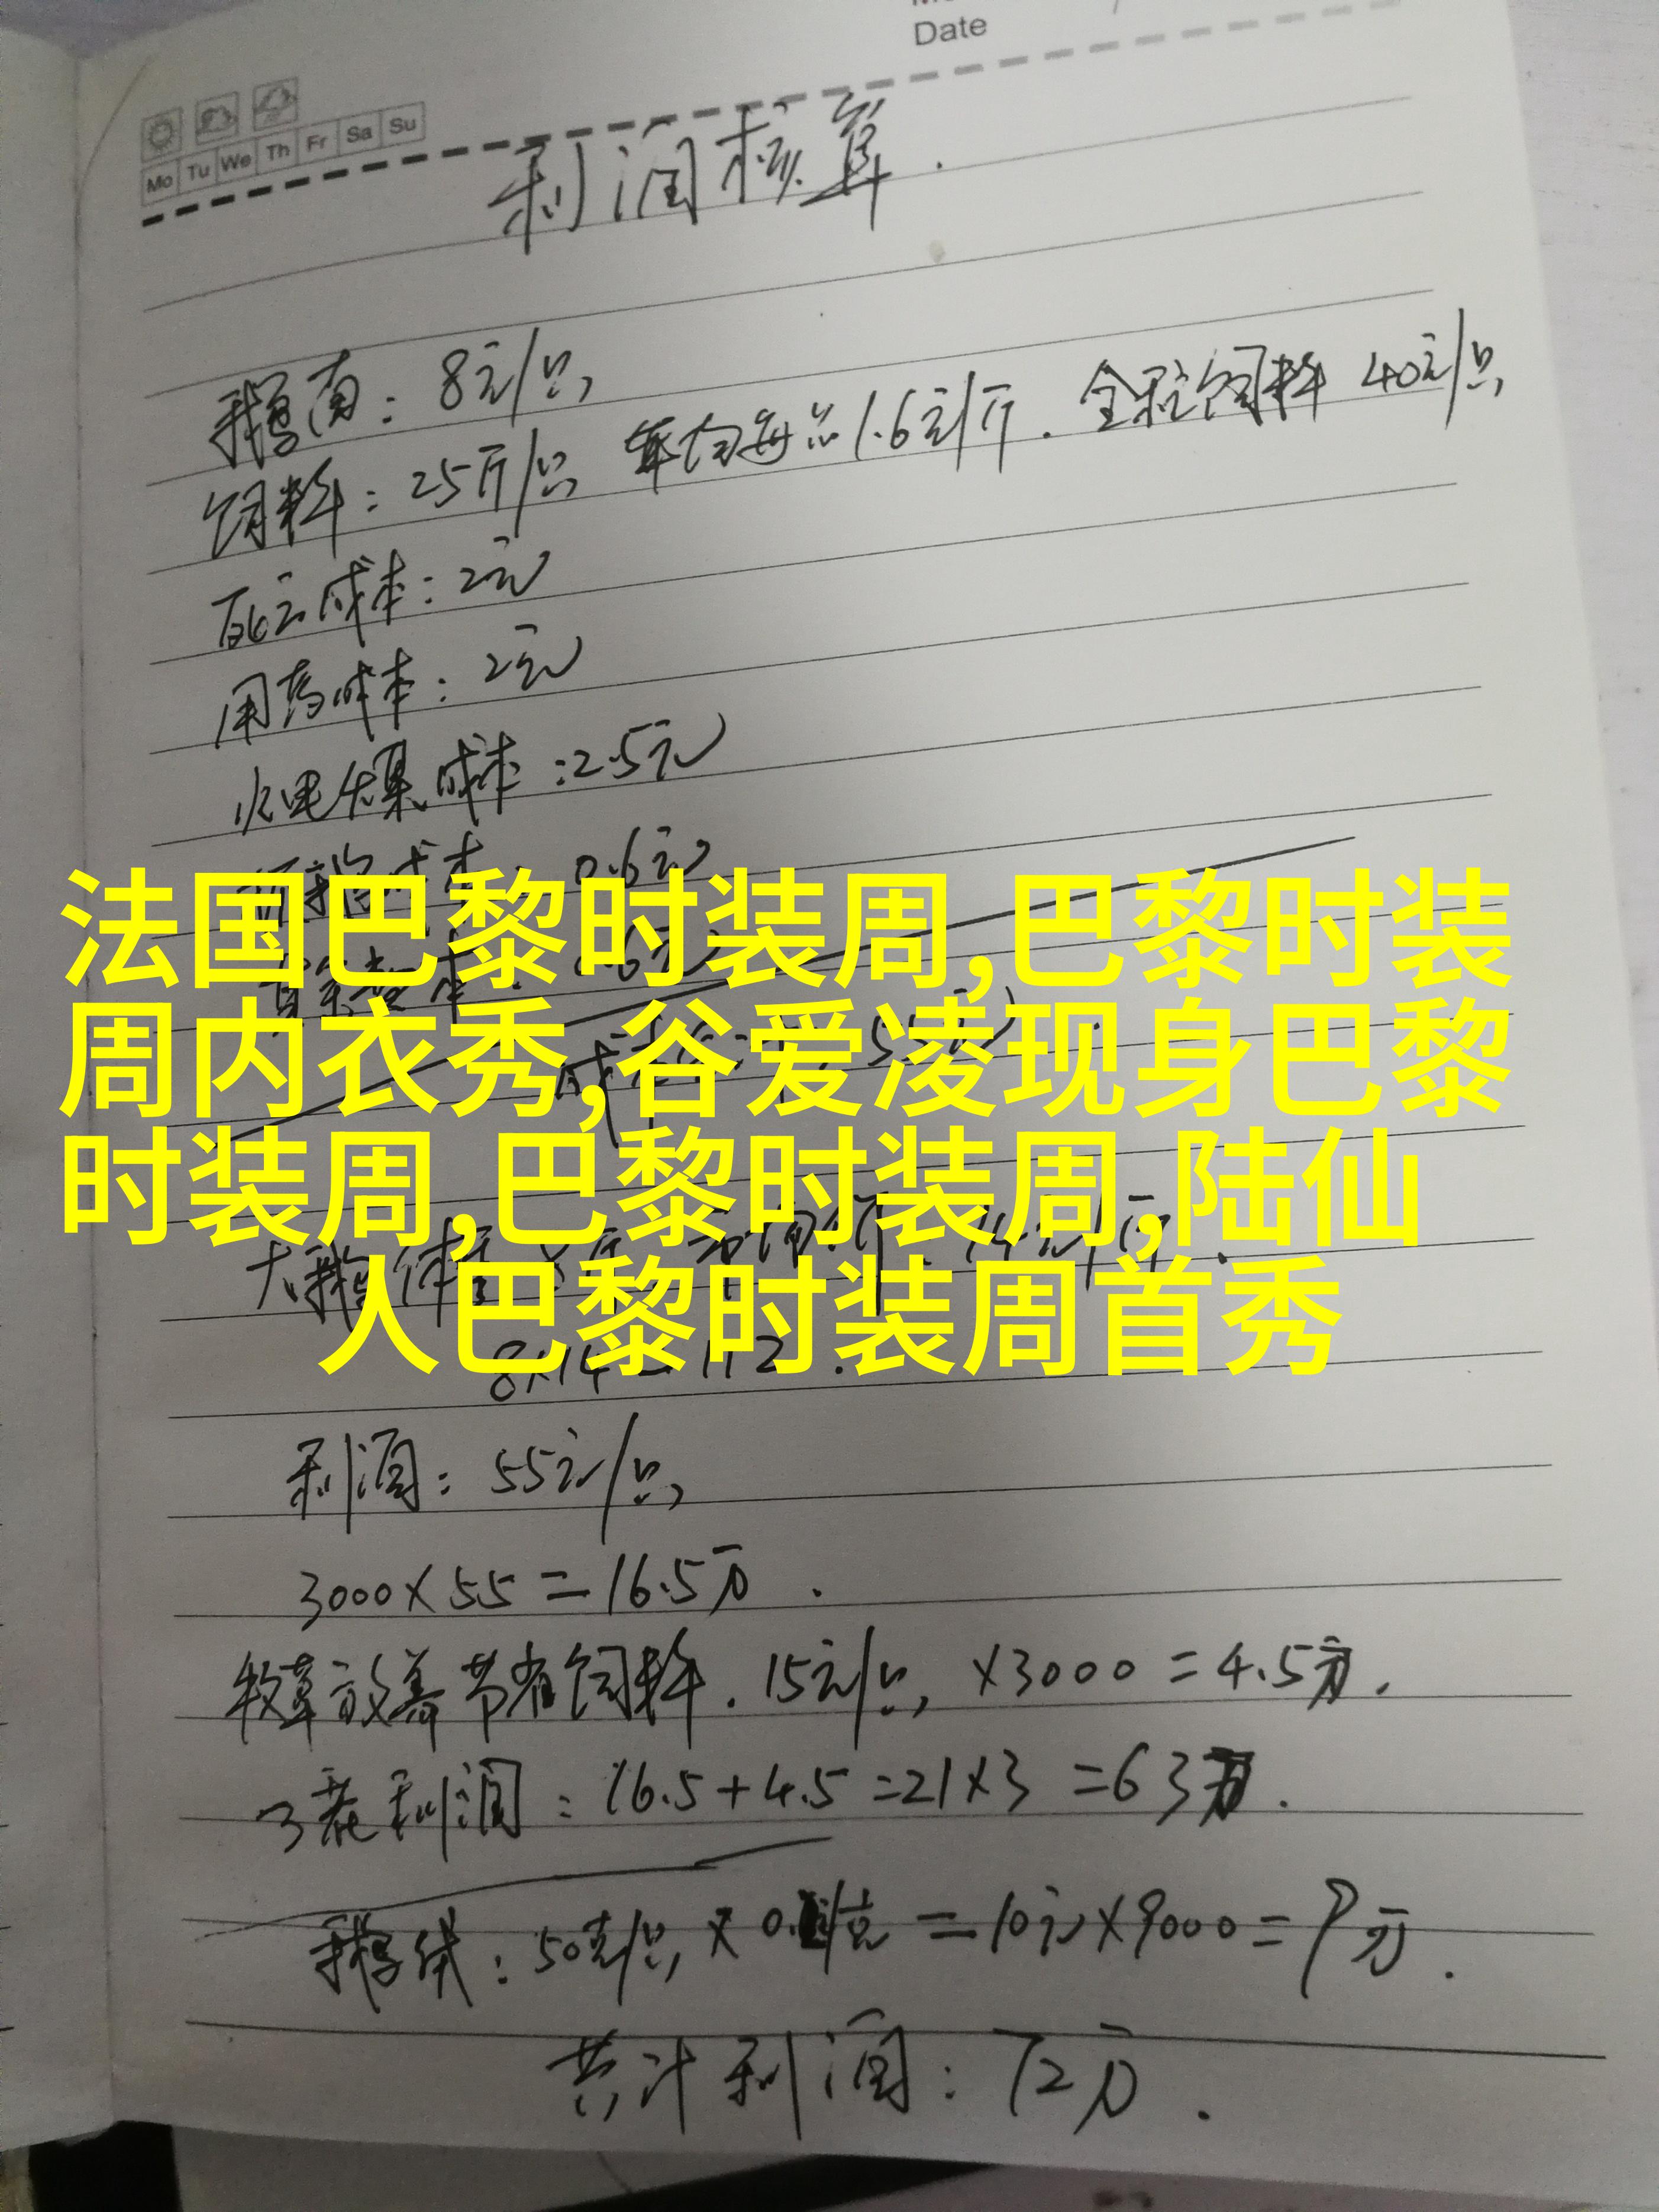 Date
Mo Tu We Th Fr Sa Su
利润核算.
鹅苗: 8元/只
饲料: 25斤/只 平均每斤1.6元/斤. 全程饲料 40元/只
死亡成本: 2元
用药成本: 2元
水电煤成本: 2.5元
0.6元
法国巴黎时装周,巴黎时装
周内衣秀,谷爱凌现身巴黎
时装周,巴黎时装周,陆仙
人巴黎时装周首秀
大鹅体重
8×14=112.
利润: 55元/只
3000×55=16.5万.
牧草放养节省饲料. 15元/只, ×3000=4.5万.
3茬利润: 16.5+4.5=21×3=63万.
鹅绒: 50克/只 × =10元×9000=9万.
共计利润: 72万.